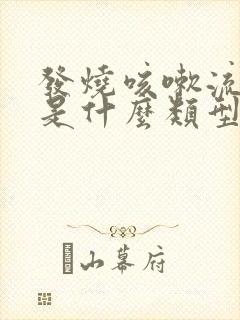 發燒咳嗽流
是什麼類型
山幕府